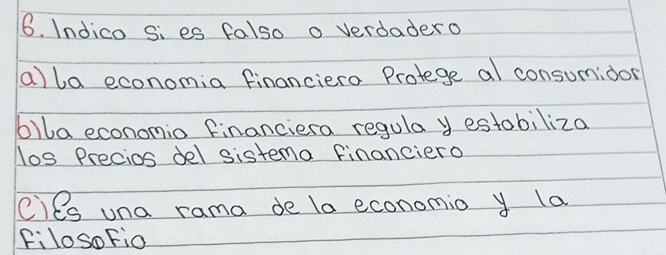 6. Indico si es falso o verdadero
a) La economia financiera Protege al consumidor
b) La economia financiera regula y estabiliza
los Precios del sistema financiero
c) Es una rama de la economia y la
filosofia